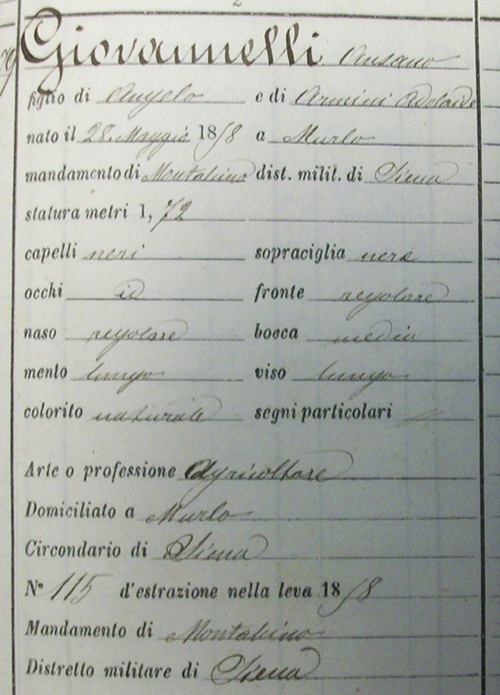 2
Giovannelli Ansano
figlio di Angelo e di Armini Adelaide
nato il 28 Maggio 1858 a Murlo
mandamento di Montalcino dist. milit. di Siena
statura metri 1, 72
capelli neri sopraciglia nere
occhi id fronte regolare
naso regolare bocca media
mento lungo viso lungo
colorito naturale segni particolari //
Arte o professione Agricoltore
Domiciliato a Murlo
Circondario di Siena
N° 115 d'estrazione nella leva 1858
Mandamento di Montalcino
Distretto militare di Siena